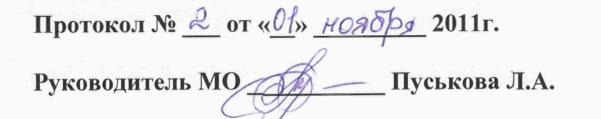 Протокол № 2 от «01» ноября 2011г.
Руководитель МО Пуськова Л.А.